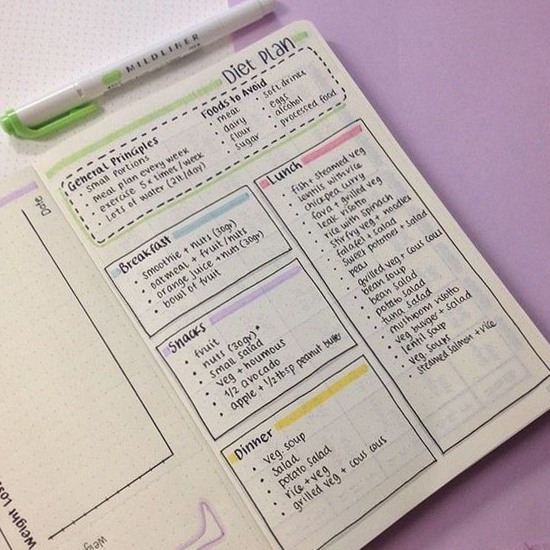 MILDLINER
Diet Plan
General Principles
• small portions
• meal plan every week
• exercise 5x times/week
• lots of water (2l/day)
Foods to Avoid
• meat
• dairy
• flour
• sugar
• soft drinks
• eggs
• alcohol
• processed food
Breakfast
• smoothie + nuts (30gr)
• oatmeal + fruit/nuts
• orange juice + nuts (30gr)
• bowl of fruit
Snacks
• fruit
• nuts (30gr)*
• small salad
• veg + houmous
• 1/2 avocado
• apple + 1/2 tbsp peanut butter
Dinner
• veg. soup
• salad
• potato salad
• rice + veg
• grilled veg + cous cous
Lunch
• fish + steamed veg
• lentils with rice
• chickpea curry
• fava + grilled veg
• leak risotto
• rice with spinach
• stir fry veg + noodles
• falafel + salad
• sweet potatoes + salad
• peas
• grilled veg + cous cous
• bean soup
• bean salad
• potato salad
• tuna salad
• mushroom risotto
• veg burger + salad
• lentil soup
• veg. soups
• steamed salmon + rice
Date
Weight Loss